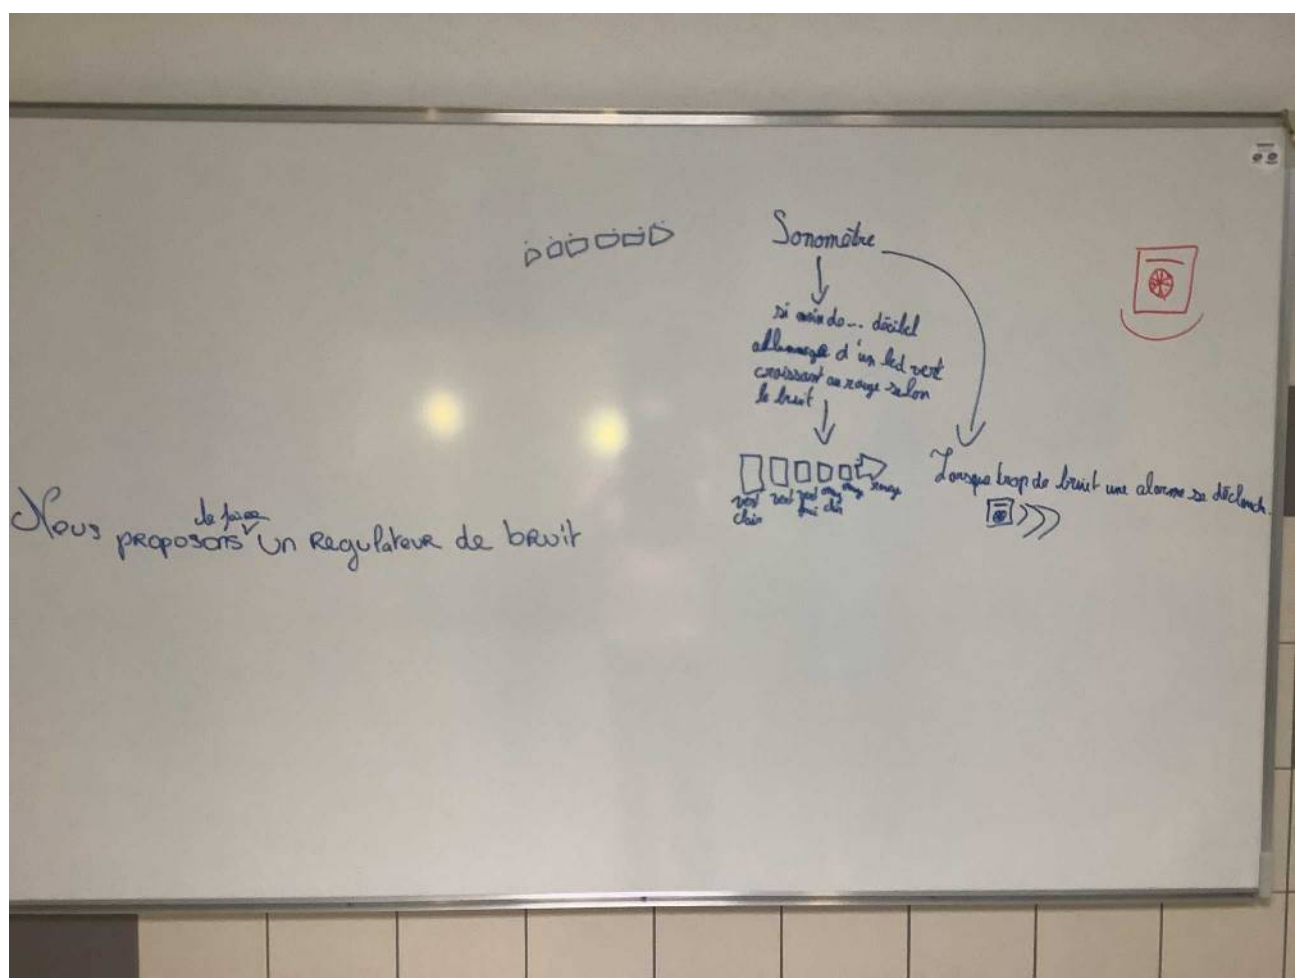 Sonomètre
si moin de... décibel
allumage d'un led vert
croissant au rouge selon
le bruit
vert clair
vert
rouge
Lorsque trop de bruit une alarme se déclench
de faire
Nous proposons un Regulateur de bruit